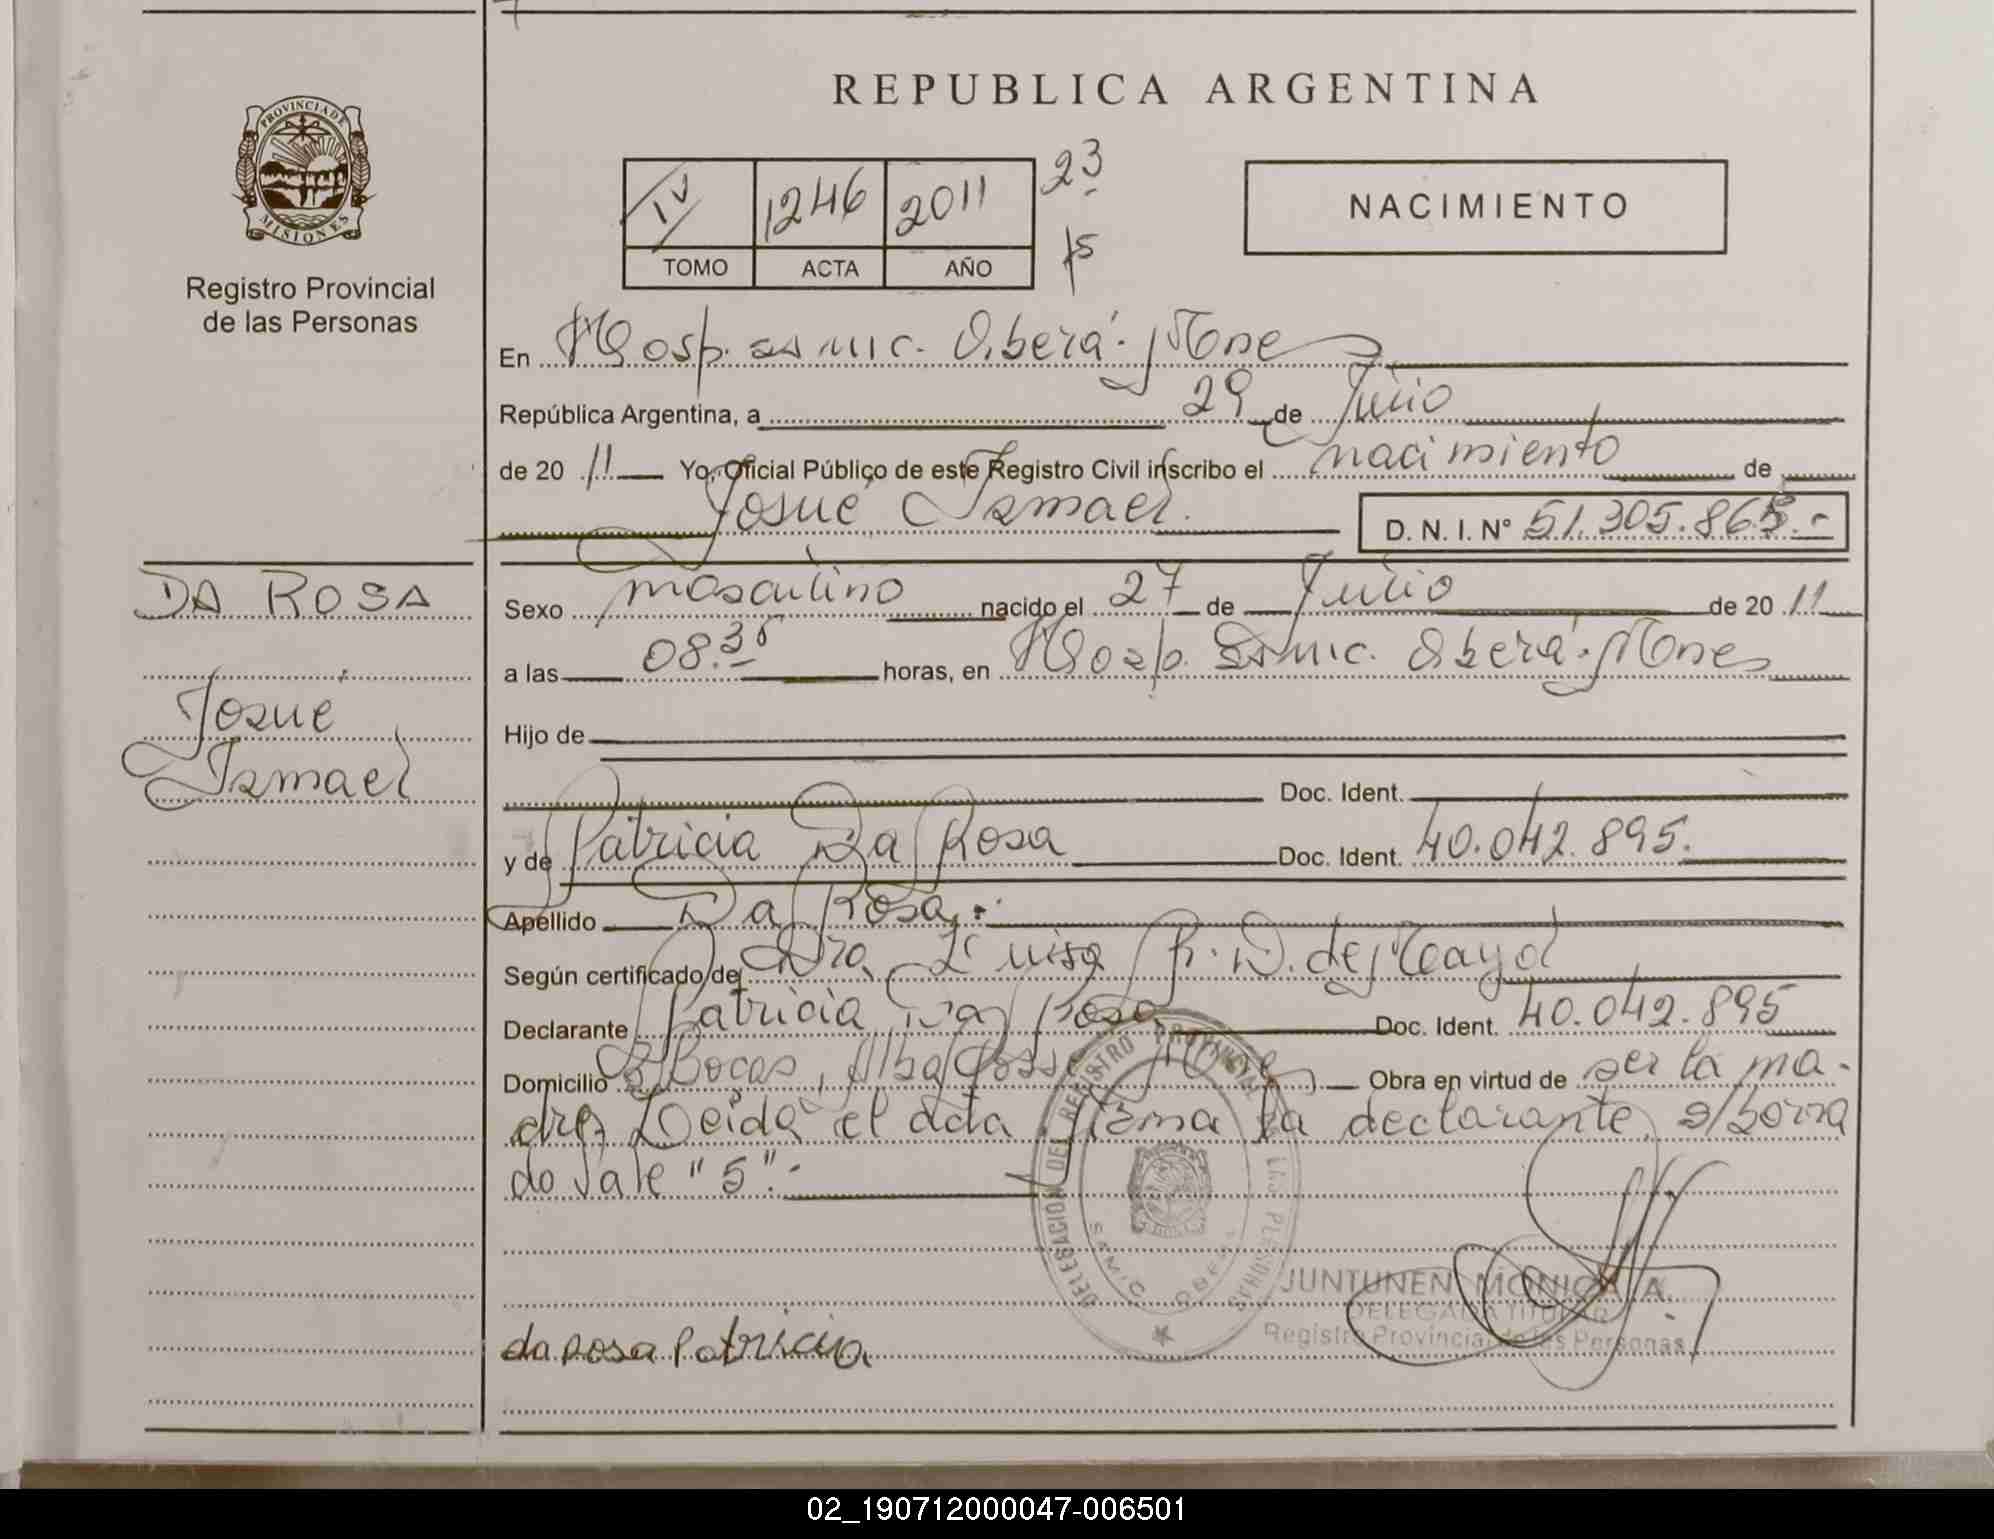 REPUBLICA ARGENTINA
PROVINCIA DE
MISIONES
Registro Provincial
de las Personas
IV 1246 2011 23
TOMO ACTA AÑO 15
NACIMIENTO
En Hosp. SAMIC. Oberá. Mnes
República Argentina, a 29 de Julio
de 20 11 Yo, Oficial Público de este Registro Civil inscribo el nacimiento de
Josué Ismael. D. N. I. Nº 51.305.865.-
DA ROSA
Josué
Ismael
Sexo masculino nacido el 27 de Julio de 20 11
a las 08.35 horas, en Hosp. SAMIC. Oberá. Mnes
Hijo de
Doc. Ident.
y de Patricia Da Rosa Doc. Ident. 40.042.895.
Apellido Da Rosa.
Según certificado de Dra. Luisa R. D. de Mayol
Declarante Patricia Da Rosa Doc. Ident. 40.042.895
Domicilio 2 Bocas, Alba Posse Mnes Obra en virtud de ser la ma-
dre. Leida el acta firma la declarante. s/borra
do vale "5".-
DELEGACION DEL REGISTRO PROVINCIAL DE LAS PERSONAS
SAMIC OBERA
JUNTUNEN MONICA A.
DELEGADA TITULAR
Registro Provincial de las Personas
da Rosa Patricia
02_190712000047-006501